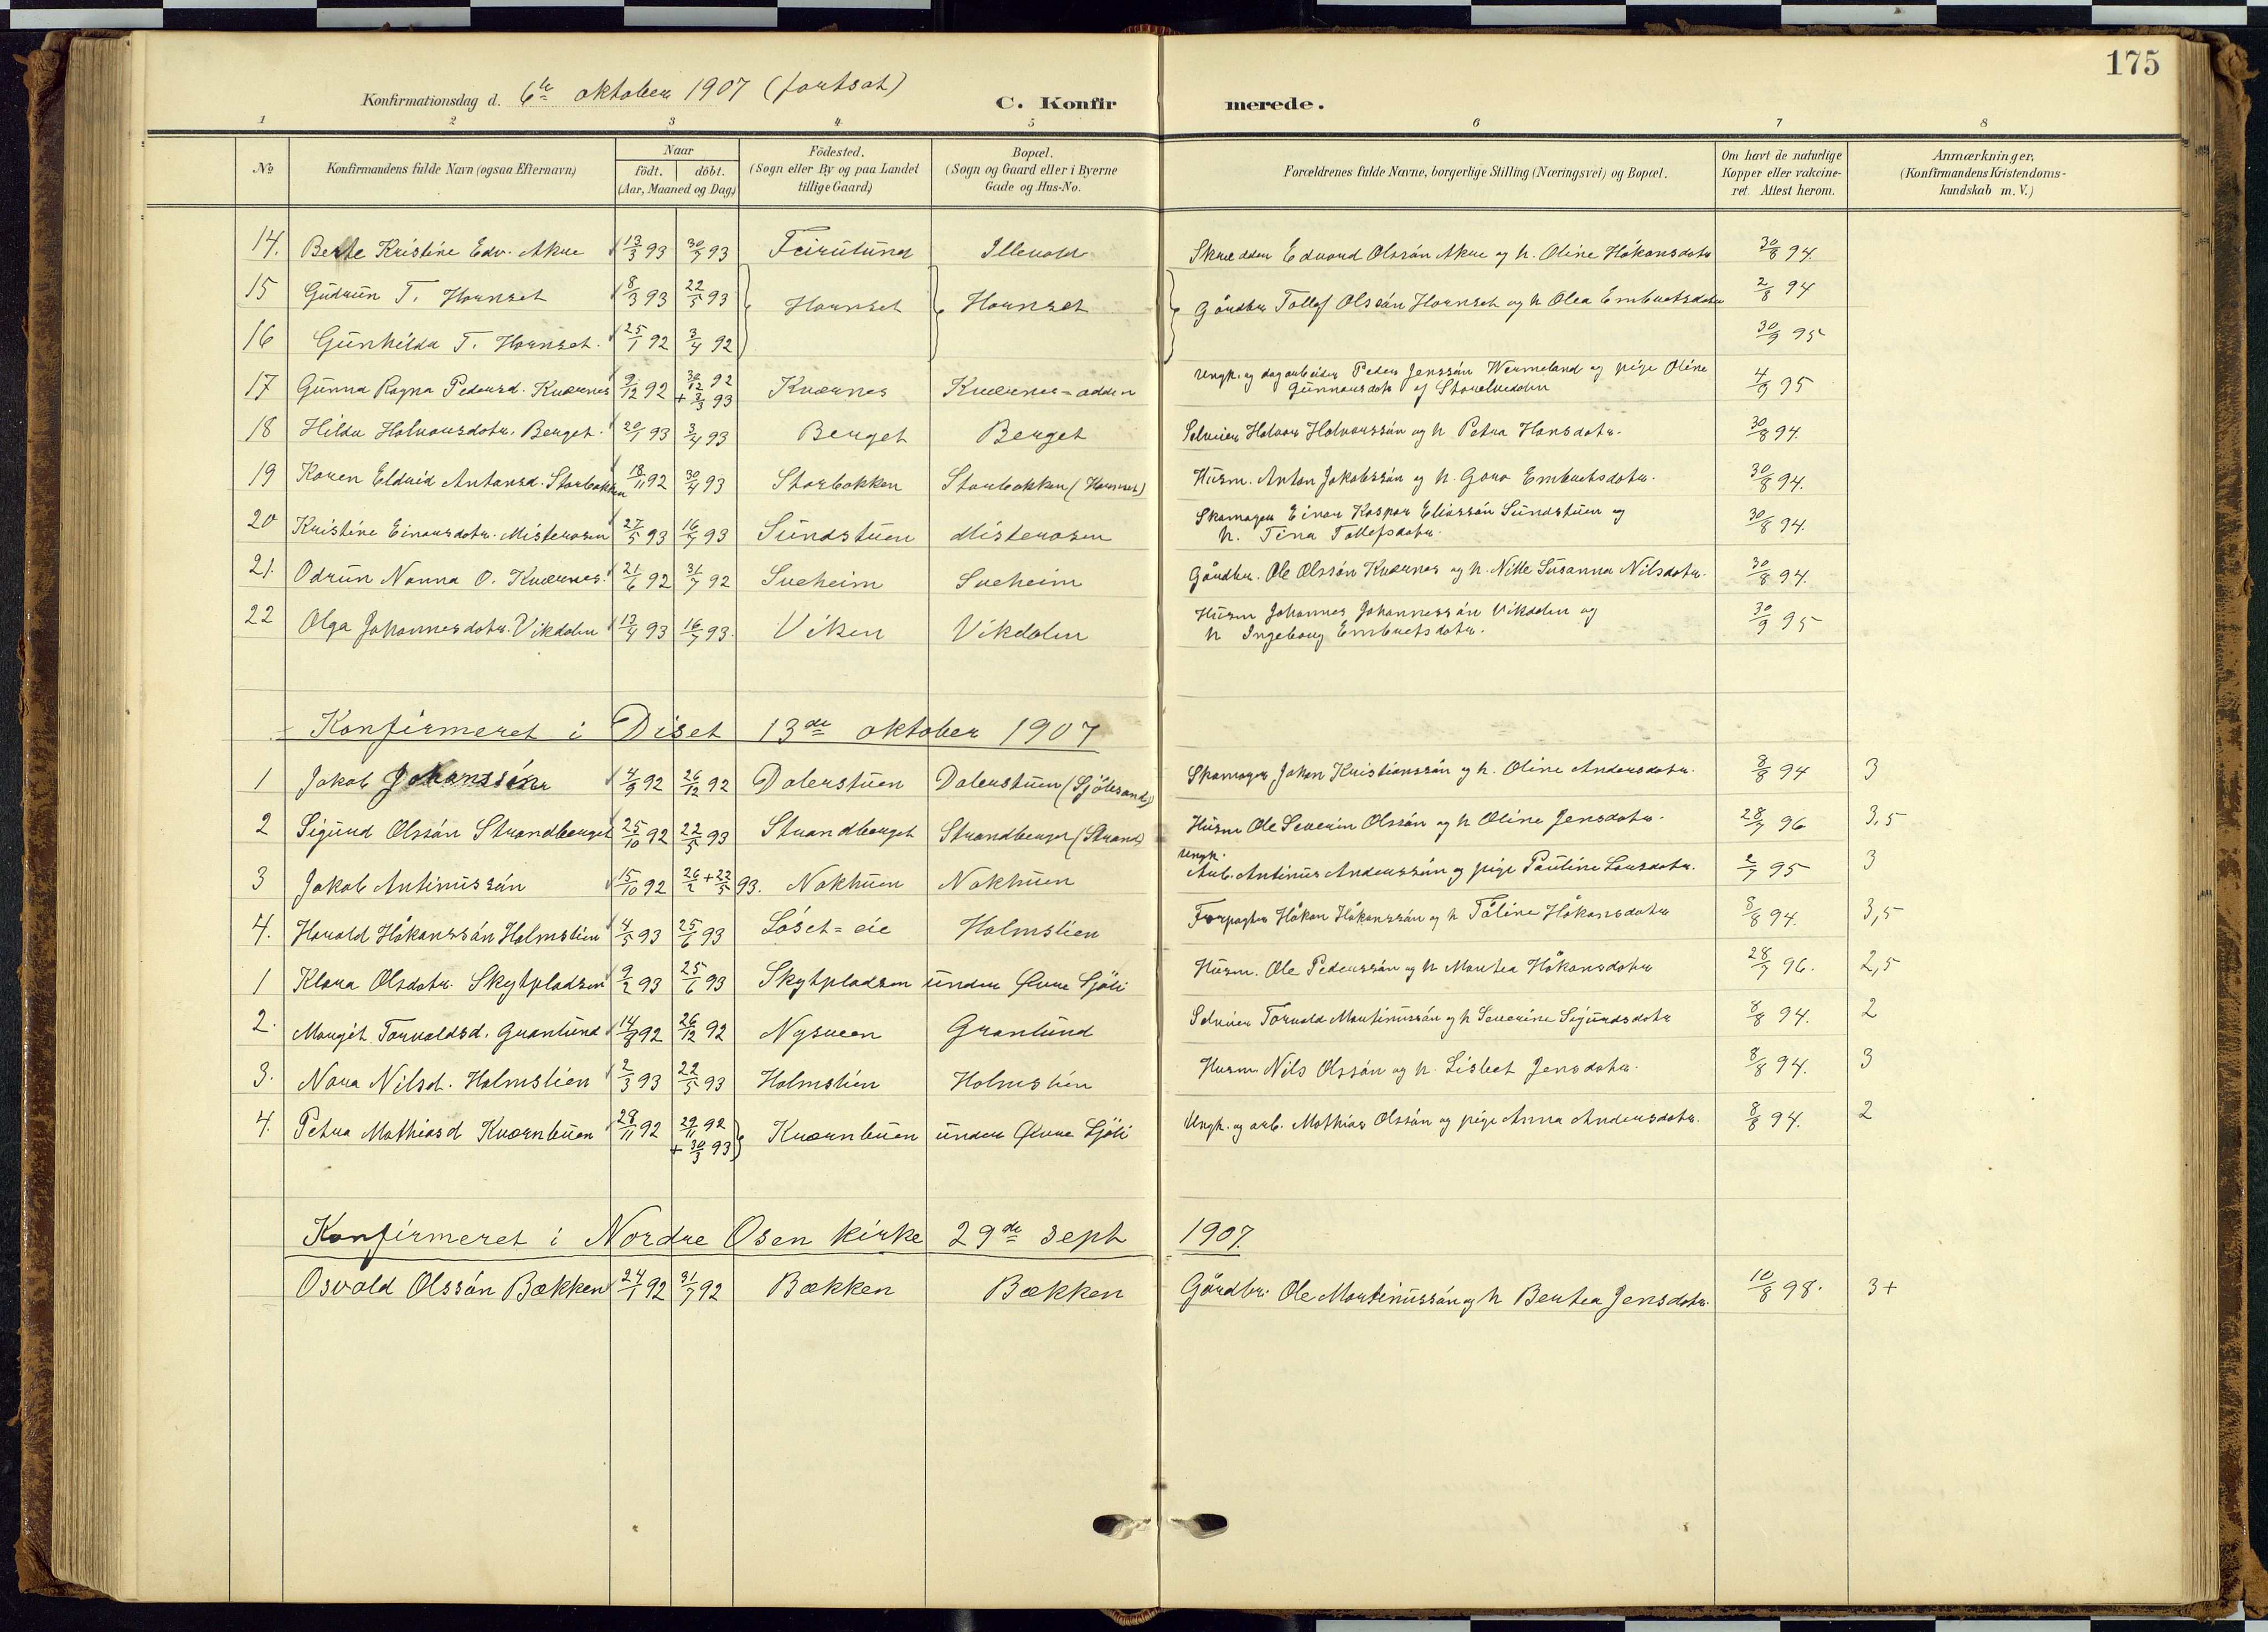 175
Konfirmationsdag d. 6te oktober 1907 (fortsat)
C. Konfirmerede.
1 2 3 4 5 6 7 8
No
Konfirmandens fulde Navn (ogsaa Efternavn)
Naar
födt. döbt.
(Aar, Maaned og Dag)
Födested.
(Sogn eller By og paa Landet
tillige Gaard)
Bopæl.
(Sogn og Gaard eller i Byerne
Gade og Hus-No.
Forældrenes fulde Navne, borgerlige Stilling (Næringsvei) og Bopæl.
Om havt de naturlige
Kopper eller vakcine-
ret. Attest herom.
Anmærkninger,
(Konfirmandens Kristendoms-
kundskab m. V.)
14. Berte Kristine Edv. Akre 13/3 93 30/7 93 Feirulund Illevold Skrædder Edvard Olssön Akre og h. Oline Håkonsdotr 30/8 94.
15 Gudrun T. Hornset 8/3 93 22/5 93 Hornset Hornset Gårdbr. Tollef Olssön Hornset og h Olea Embretsdotr 2/8 94
16 Gunhilda T. Hornset. 25/1 92 3/4 92 30/9 95
17 Gunna Ragna Pedersd. Kværnes 9/12 92 30/12 92 + 3/3 93 Kværnes Kværnes-odden Ungk. og dagarbeider Peder Jenssön Wermeland og pige Oline
Gunnarsdotr af Storelvedalen 4/9 95
18 Hilda Halvorsdotr. Berget. 20/1 93 3/4 93 Berget Berget Selveier Halvor Halvorssön og h Petra Hansdotr. 30/8 94.
19 Karen Eldrid Antonsd. Storbakken 18/11 92 30/4 93 Storbakken Storbakken (Hornset) Husm. Anton Jakobssön og h. Goro Embretsdotr. 30/8 94.
20 Kristine Einarsdotr. Misterosen 27/5 93 16/7 93 Sundstuen Misterosen Skomager Einar Kaspar Eliassön Sundstuen og
h. Tina Tollefsdotr. 30/8 94.
21. Odrun Nanna O. Kværnes. 21/6 92 31/7 92 Sveheim Sveheim Gårdbr. Ole Olssön Kværnes og h. Nille Susanna Nilsdotr. 30/8 94.
22 Olga Johannesdotr. Vikdalen 13/4 93 16/7 93. Viken Vikdalen Husm Johannes Johannessön Vikdalen og
h Ingeborg Embretsdotr. 30/9 95
Konfirmeret i Diset 13de oktober 1907
1 Jakob Johanssön 4/9 92 26/12 92 Dalerstuen Dalerstuen (Sjölisand) Skomager Johan Kristianssön og h. Oline Andersdotr. 8/8 94 3
2 Sigurd Olssön Strandberget 25/10 92 22/5 93 Strandberget Strandberget (Strand) Husm Ole Severin Olssön og h Oline Jensdotr. 28/7 96 3,5
3 Jakob Antinussön 15/10 92 26/2 + 22/5 93. Nokhuen Nokhuen Ungk.
Arb. Antinus Anderssön og pige Pauline Larsdotr. 2/7 95 3
4. Harald Håkonssön Holmslien 4/5 93 25/6 93 Löset-eie Holmslien Forpagter Håkon Håkonssön og h Töline Håkonsdotr 8/8 94. 3,5
1 Klara Olsdotr. Skytpladsen 9/2 93 25/6 93 Skytpladsen under Övre Sjöli Husm. Ole Pederssön og h Martea Håkonsdotr 28/7 96. 2,5
2. Margit Torvaldsd. Granlund 14/8 92 26/12 92 Nysveen Granlund Selveier Torvald Martinussön og h Severine Sigurdsdotr 8/8 94. 2
3. Nora Nilsd. Holmslien 2/3 93 22/5 93 Holmslien Holmslien Husm Nils Olssön og h. Lisbet Jensdotr. 8/8 94. 3
4. Petra Mathiasd Kværnbuen 28/11 92 29/11 92 + 30/3 93 Kværnbuen under Övre Sjöli Ungk. og arb. Mathias Olssön og pige Anna Andersdotr. 8/8 94. 2
Konfirmeret i Nordre Osen kirke 29de sept 1907.
Osvald Olssön Bækken 24/1 92 31/7 92 Bækken Bækken Gårdbr. Ole Martinussön og h Bertea Jensdotr. 10/8 98. 3+